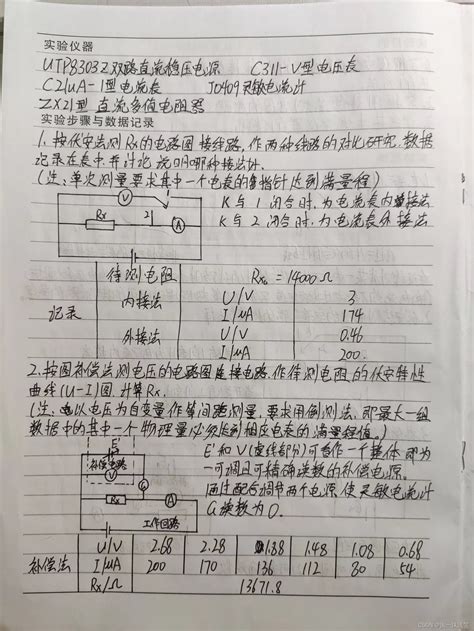 实验仪器
UTP8303Z双路直流稳压电源 C311-V型电压表
C21μA-1型电流表 J0409灵敏电流计
ZX21型 直流多值电阻器
实验步骤与数据记录
1、按伏安法测Rx的电路图接线路，作两种线路的对比研究，数据
记录在表中并讨论说明哪种接法好。
(注：单次测量要求其中一个电表的指针达到满量程)
K与1闭合时，为电流表内接法
K与2闭合时，为电流表外接法
V
1
2
Rx
A
待测电阻 Rx = 14000Ω
记录 内接法 U/V 3
I/μA 174
外接法 U/V 0.46
I/μA 200
2、按图补偿法测电压的电路图连接电路，作待测电阻的伏安特性
曲线(U-I)图，计算Rx.
(注：以电压为自变量作等间距测量，要求用倒测法，即最大一组
数据中的其中一个物理量必须达到相应电表的满量程值。)
E'和V(虚线部分)可看作一个整体，即为
一可调且可精确读数的补偿电源。
通过配合调节两个电源，使灵敏电流计
G读数为0。
E'
补偿电路
V
G
Rx
A
工作回路
补偿法 U/V 2.68 2.28 1.88 1.48 1.08 0.68
I/μA 200 170 136 112 80 54
Rx/Ω 13671.8